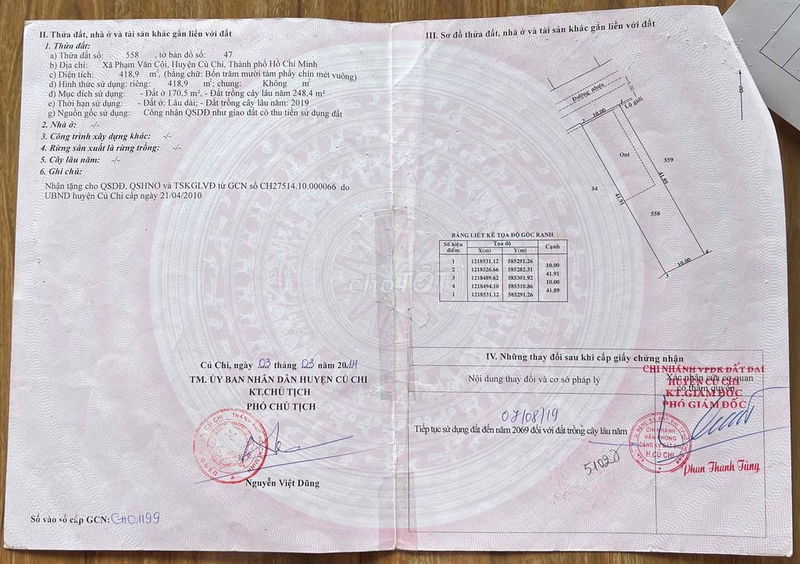 II. Thửa đất, nhà ở và tài sản khác gắn liền với đất
1. Thửa đất:
a) Thửa đất số: 558, tờ bản đồ số: 47
b) Địa chỉ: Xã Phạm Văn Cội, Huyện Củ Chi, Thành phố Hồ Chí Minh
c) Diện tích: 418,9 m², (bằng chữ: Bốn trăm mười tám phẩy chín mét vuông)
d) Hình thức sử dụng: riêng: 418,9 m²; chung: Không m²
đ) Mục đích sử dụng: - Đất ở 170,5 m². - Đất trồng cây lâu năm 248,4 m²
e) Thời hạn sử dụng: - Đất ở: Lâu dài; - Đất trồng cây lâu năm: 2019
g) Nguồn gốc sử dụng: Công nhận QSDĐ như giao đất có thu tiền sử dụng đất
2. Nhà ở: -/-
3. Công trình xây dựng khác: -/-
4. Rừng sản xuất là rừng trồng: -/-
5. Cây lâu năm: -/-
6. Ghi chú:
Nhận tặng cho QSDĐ, QSHNỞ và TSKGLVĐ từ GCN số CH27514.10.000066 do
UBND huyện Củ Chi cấp ngày 21/04/2010
Củ Chi, ngày 03 tháng 03 năm 2014
TM. ỦY BAN NHÂN DÂN HUYỆN CỦ CHI
KT.CHỦ TỊCH
PHÓ CHỦ TỊCH
Nguyễn Việt Dũng
Số vào sổ cấp GCN: CH01199
III. Sơ đồ thửa đất, nhà ở và tài sản khác gắn liền với đất
B
Đường nhựa
Lộ giới
10.00
1
2
Ont
559
54
41.89
41.91
558
10.00
3
4
BẢNG LIỆT KÊ TỌA ĐỘ GÓC RANH
Số hiệu điểm Tọa độ Cạnh
X(m) Y(m)
1 1218531.12 585291.26
10.00
2 1218526.66 585282.31
41.91
3 1218489.62 585301.92
10.00
4 1218494.10 585310.86
41.89
1 1218531.12 585291.26
IV. Những thay đổi sau khi cấp giấy chứng nhận
Nội dung thay đổi và cơ sở pháp lý
Xác nhận của cơ quan
có thẩm quyền
CHI NHÁNH VPĐK ĐẤT ĐAI
HUYỆN CỦ CHI
KT.GIÁM ĐỐC
PHÓ GIÁM ĐỐC
07/08/19
Tiếp tục sử dụng đất đến năm 2069 đối với đất trồng cây lâu năm
CHI NHÁNH
VĂN PHÒNG
ĐĂNG KÝ ĐẤT ĐAI
H.CỦ CHI
Phan Thanh Tùng
chợTỐT